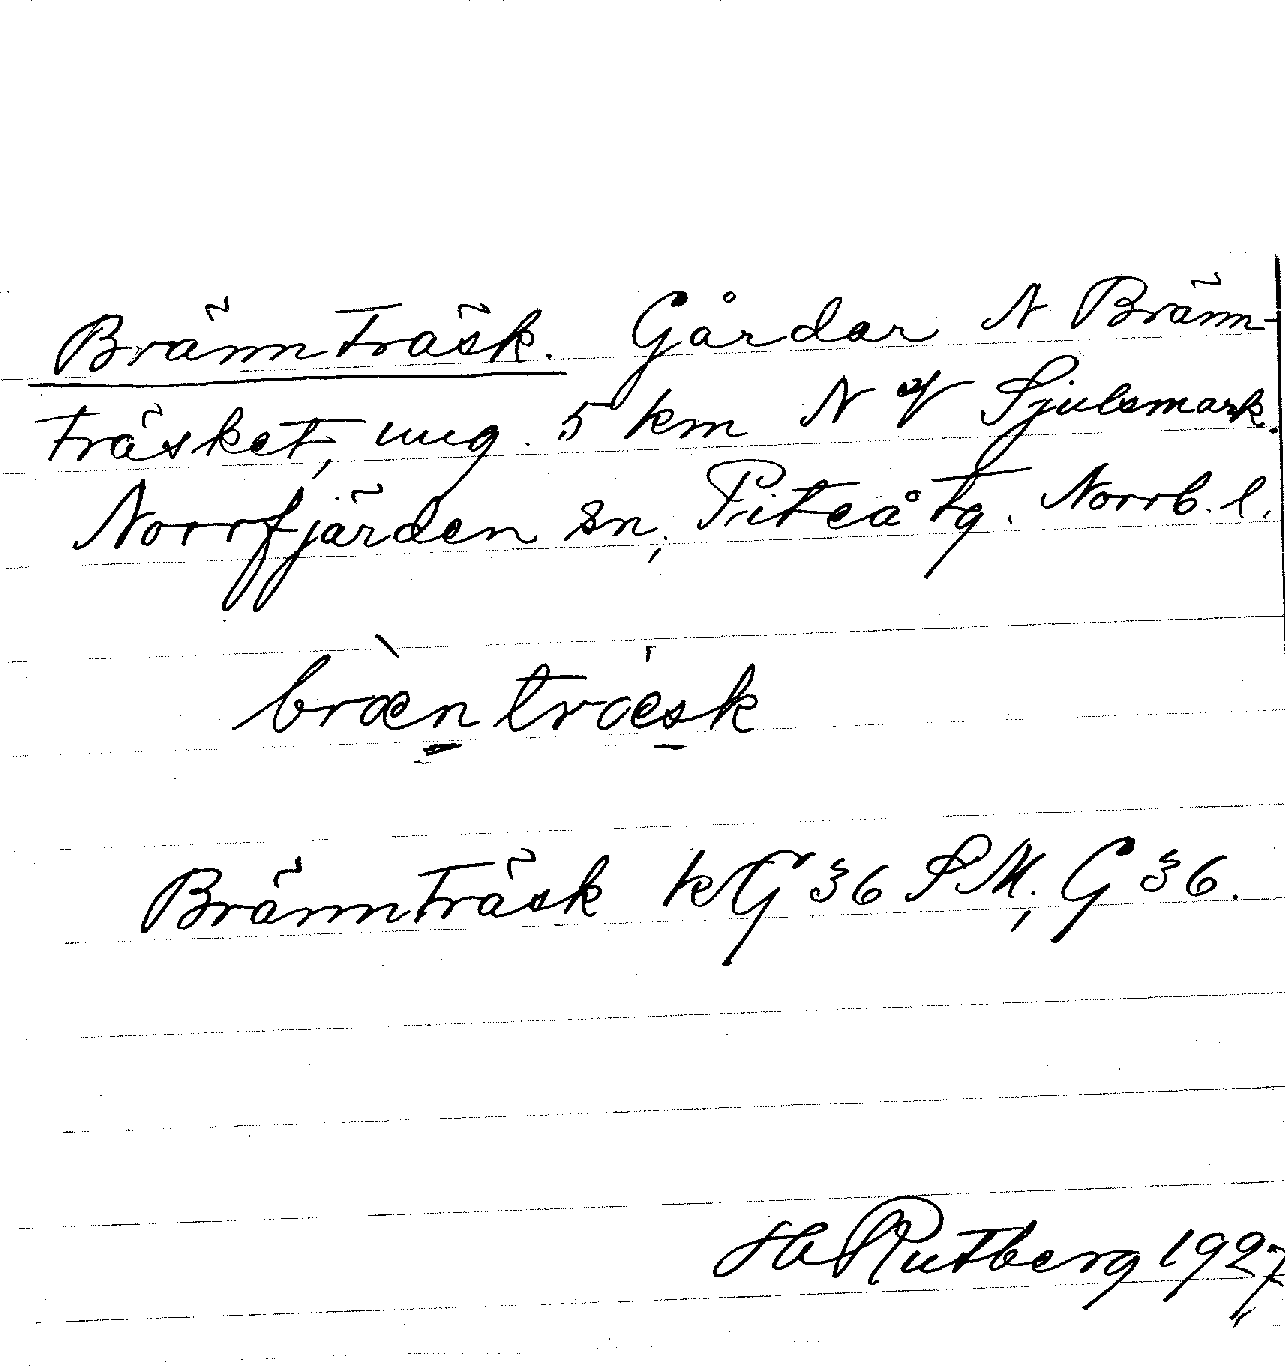 Brännträsk. Gårdar N Bränn-
träsket, ung. 5 km N of Sjulsmark.
Norrfjärden sn, Piteå tg. Norrb. l.
bræn træsk
Brännträsk kG 36 SM, G 36.
H Rutberg 1927